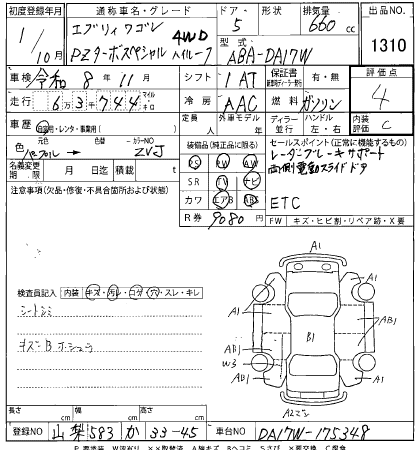 初度登録年月 通称車名・グレード ドア 形状 排気量 出品No.
1/10月 エブリィワゴン 4WD 5 660cc 1310
PZターボスペシャル ハイルーフ 型式 ABA-DA17W
車検 令和 8年 11月 シフト 1AT 保証書 有・無 評価点
走行 63744 マイル キロ 冷房 AAC 燃料 ガソリン 4
車歴 自家用・レンタ・事業用( ) 定員 人 外車モデル 年 ディーラー 並行 ハンドル 左・右 内装評価 C
色 元色 パープル 色替 カラーNO ZVJ 装備品(純正品に限る) セールスポイント(正常に機能するもの)
PS PW AW レーダーブレーキサポート
名義変更期限 月 日 迄 積載 t SR TV ナビ 両側電動スライドドア
注意事項(欠品・修復・不具合箇所および状態) カワ エアB ABS ETC
R券 9080円 FW キズ・ヒビ割・リペア跡・X要
検査員記入 内装 キズ・汚レ・コゲ・穴・スレ・キレ
シートシミ
キズB ホシュウ
A1
A1 A1
A1 AB1
B1
AB1 AB1
W3
A1 A1
A2
長さ cm 幅 cm 高さ cm
登録NO 山梨 583 か 33-45 車台NO DA17W-175348